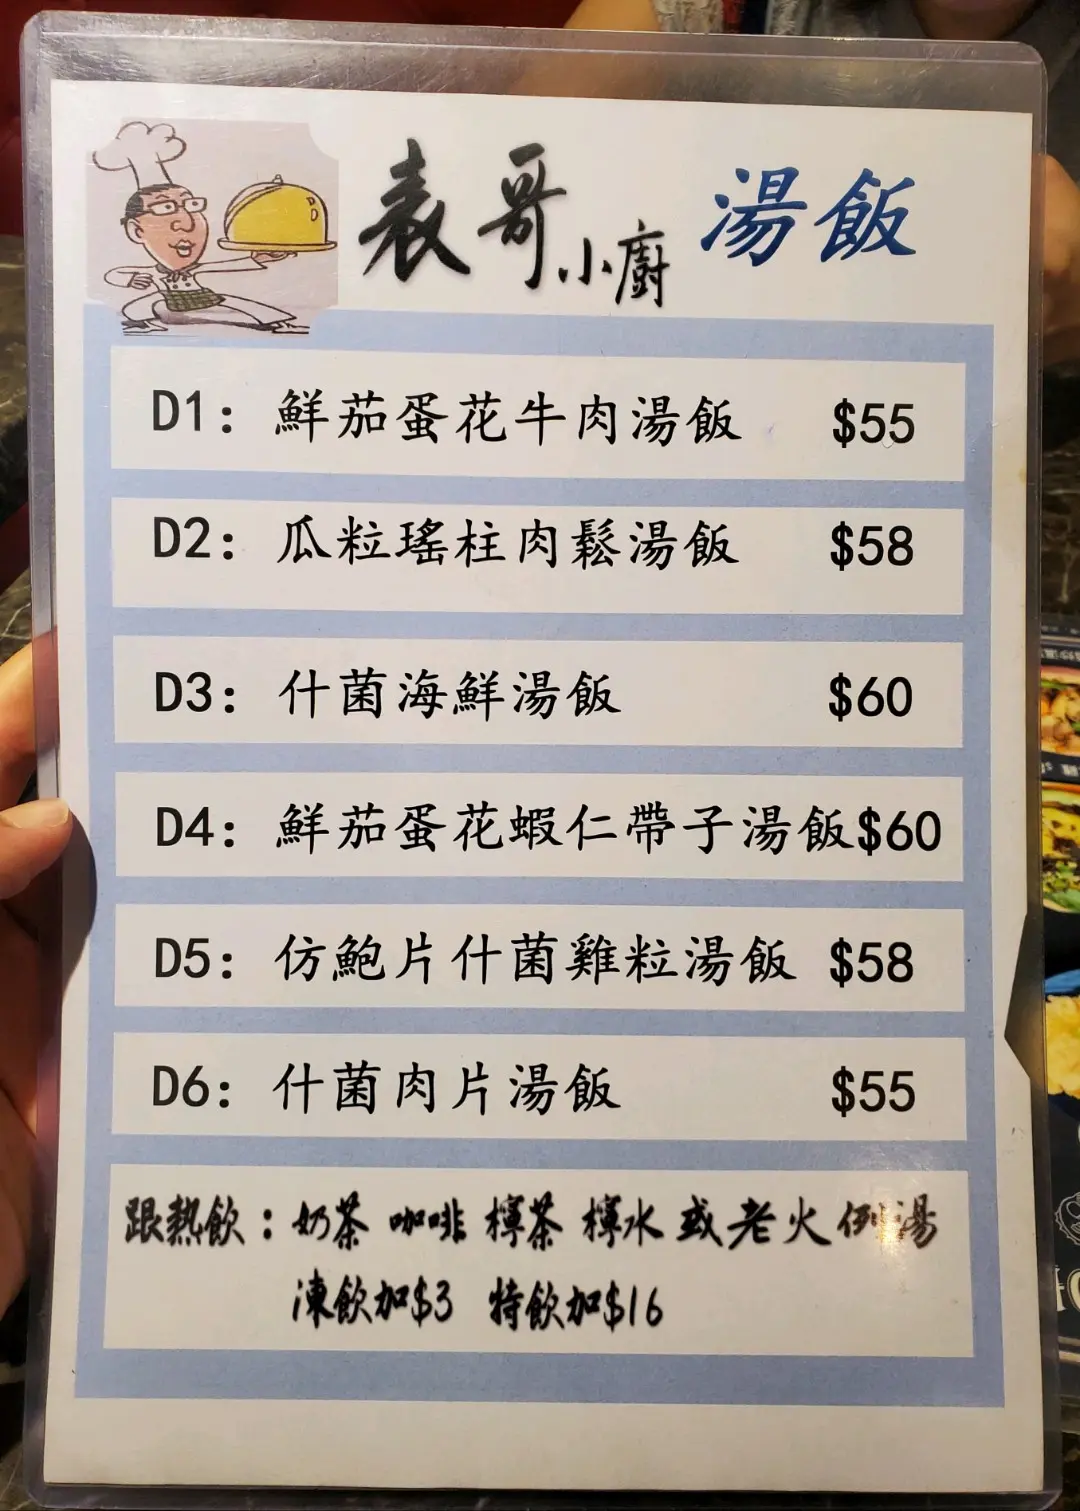 表哥小廚 湯飯
D1: 鮮茄蛋花牛肉湯飯 $55
D2: 瓜粒瑤柱肉鬆湯飯 $58
D3: 什菌海鮮湯飯 $60
D4: 鮮茄蛋花蝦仁帶子湯飯$60
D5: 仿鮑片什菌雞粒湯飯 $58
D6: 什菌肉片湯飯 $55
跟熱飲:奶茶 咖啡 檸茶 檸水 或老火例湯
凍飲加$3 特飲加$16